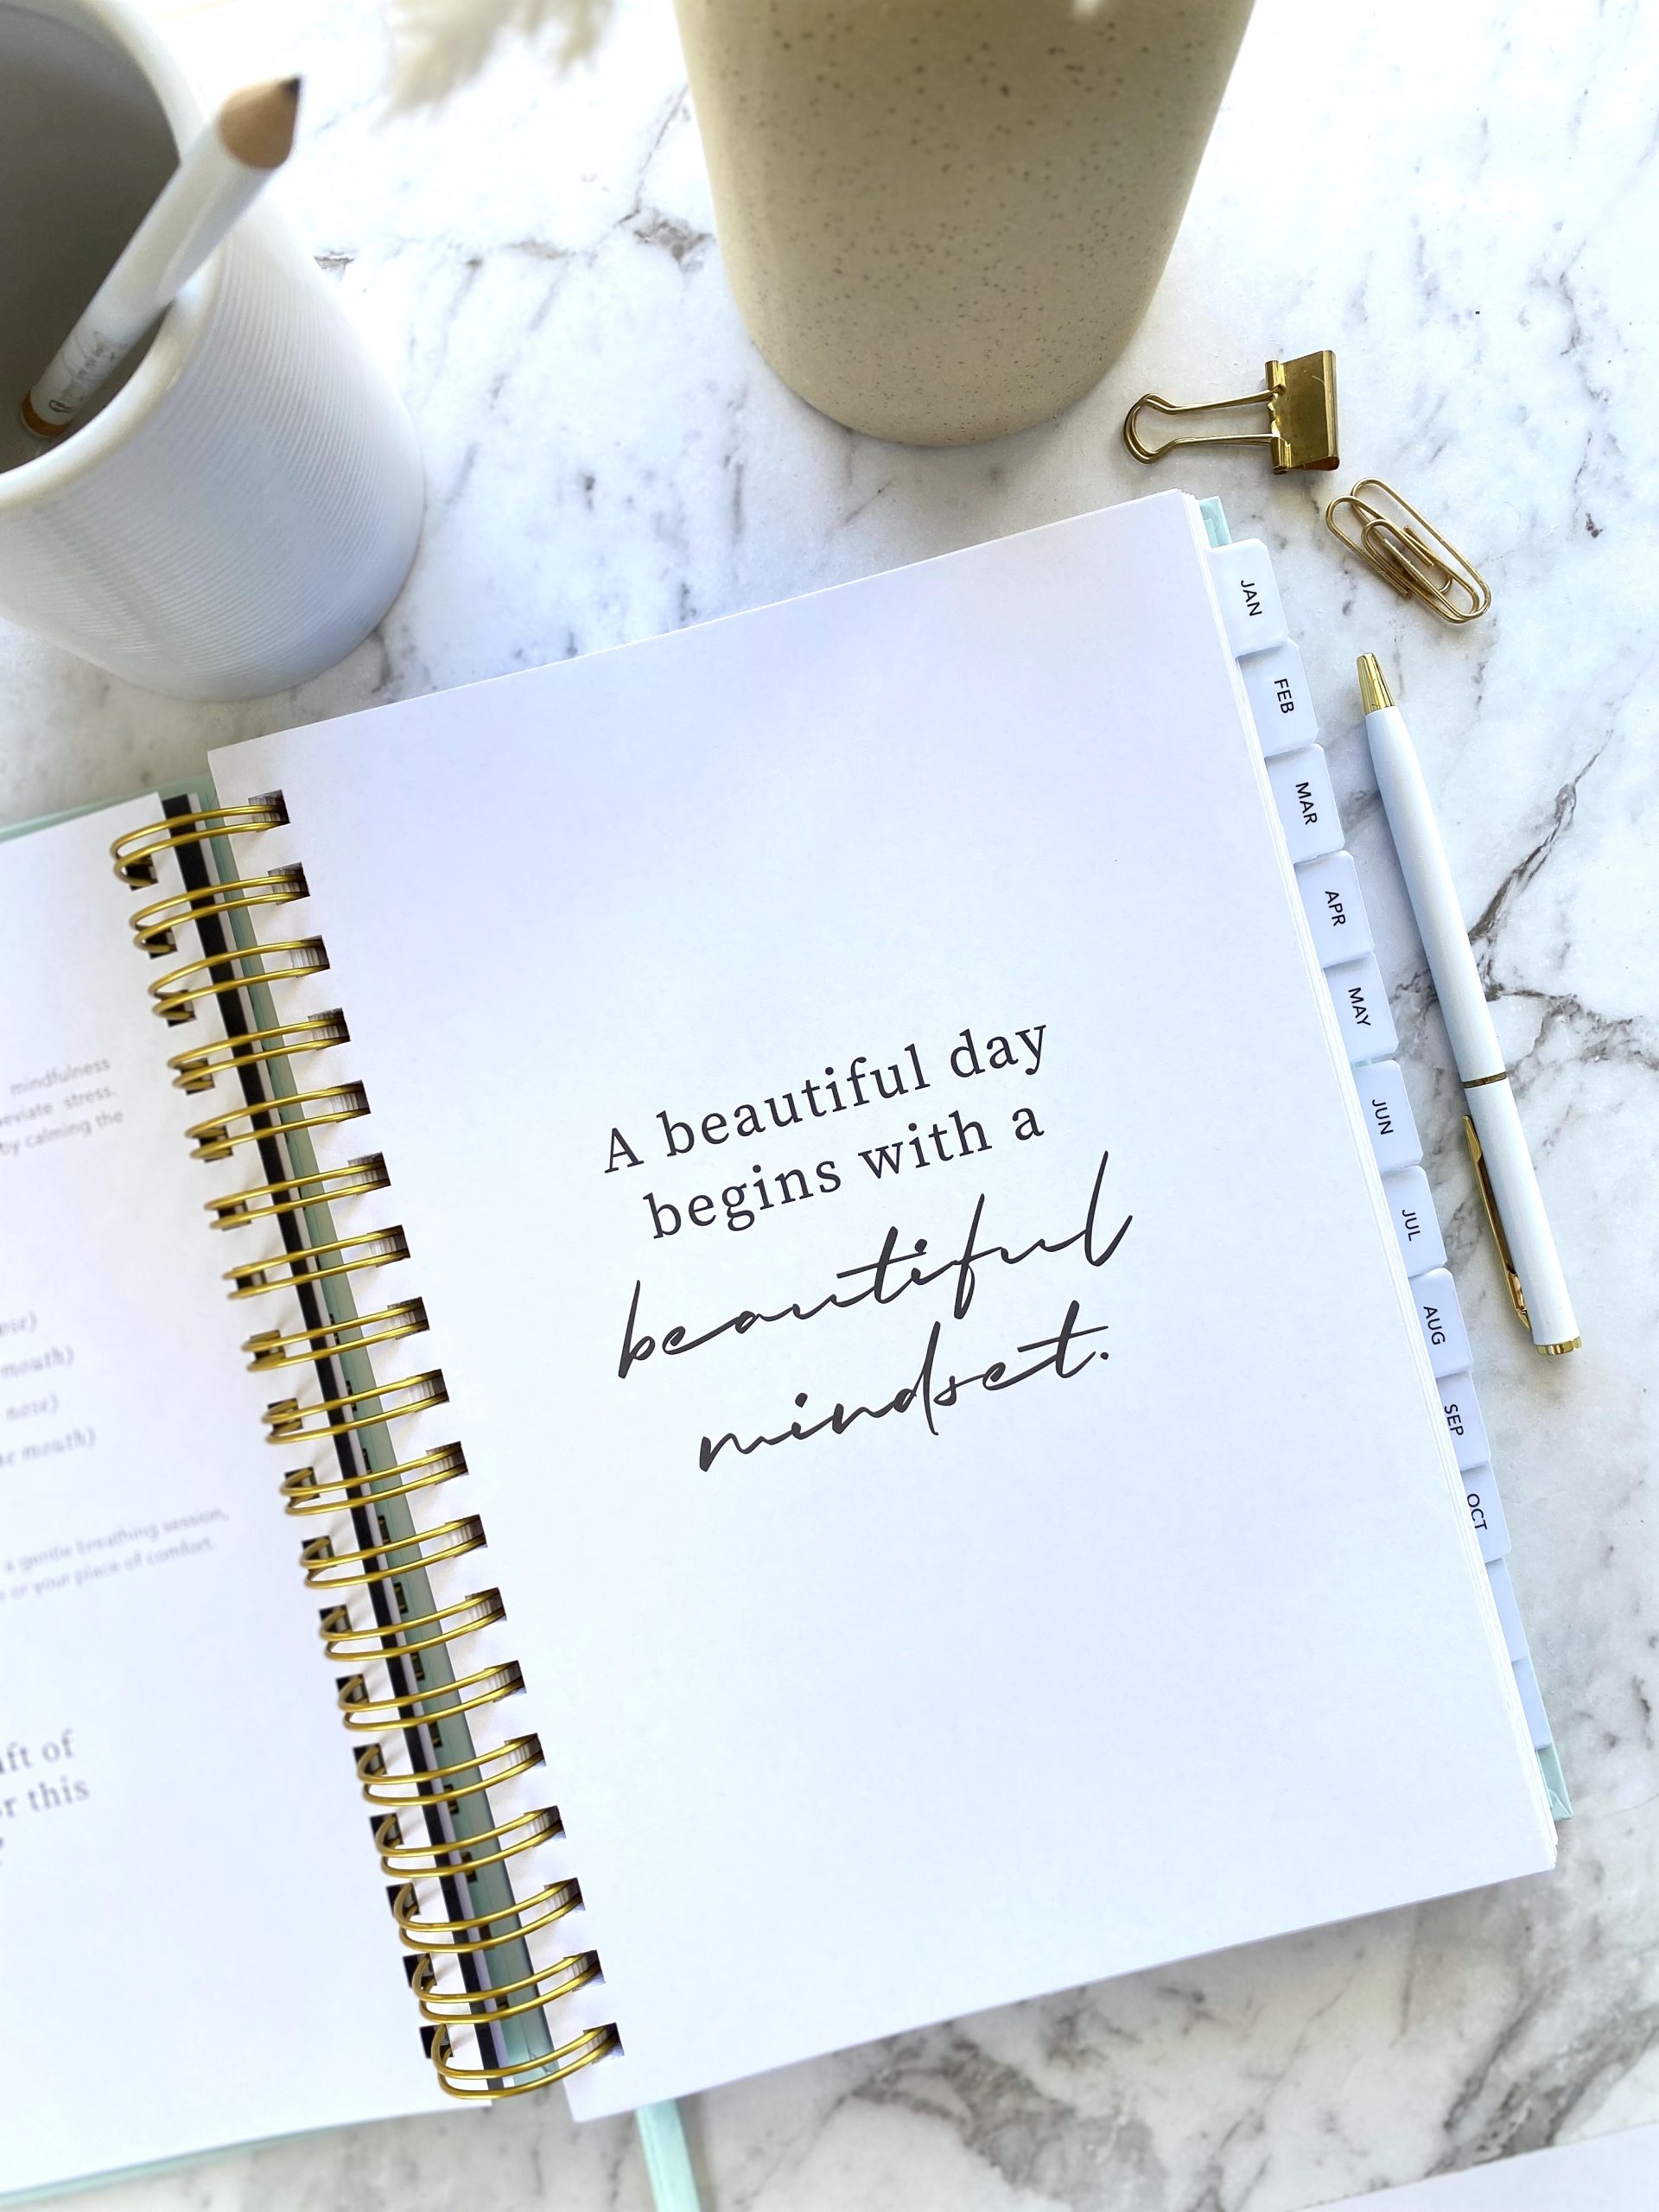 mindfulness
stress.
by calming the
mouth)
nose)
mouth)
a gentle breathing session,
or your place of comfort.
of
this
A beautiful day
begins with a
beautiful
mindset.
JAN
FEB
MAR
APR
MAY
JUN
JUL
AUG
SEP
OCT